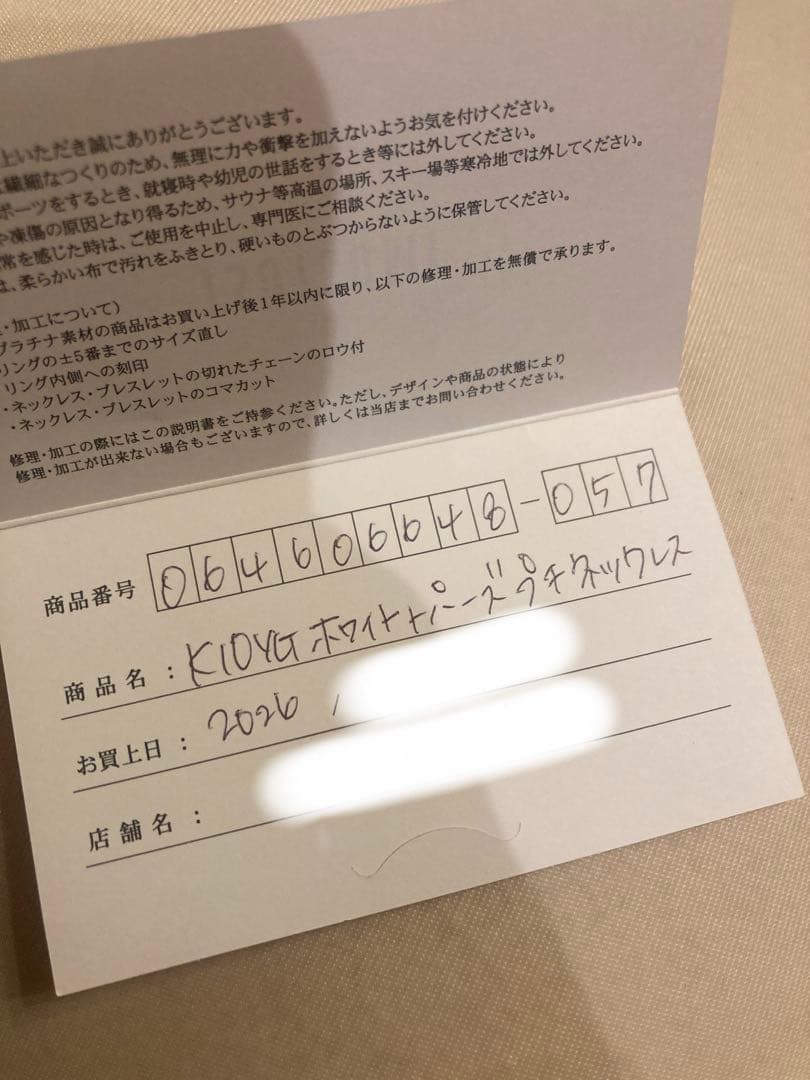 上いただき誠にありがとうございます。
繊細なつくりのため、無理に力や衝撃を加えないようお気を付けください。
ポーツをするとき、就寝時や幼児の世話をするとき等には外してください。
や凍傷の原因となり得るため、サウナ等高温の場所、スキー場等寒冷地では外してください。
常を感じた時は、ご使用を中止し、専門医にご相談ください。
は、柔らかい布で汚れをふきとり、硬いものとぶつからないように保管してください。
・加工について）
プラチナ素材の商品はお買い上げ後1年以内に限り、以下の修理・加工を無償で承ります。
リングの±5番までのサイズ直し
リング内側への刻印
・ネックレス・ブレスレットの切れたチェーンのロウ付
・ネックレス・ブレスレットのコマカット
修理・加工の際にはこの説明書をご持参ください。ただし、デザインや商品の状態により
修理・加工が出来ない場合もございますので、詳しくは当店までお問い合わせください。
商品番号 064606648-057
商品名：K10YG ホワイトトパーズ プチネックレス
お買上日：2026 ,
店舗名：